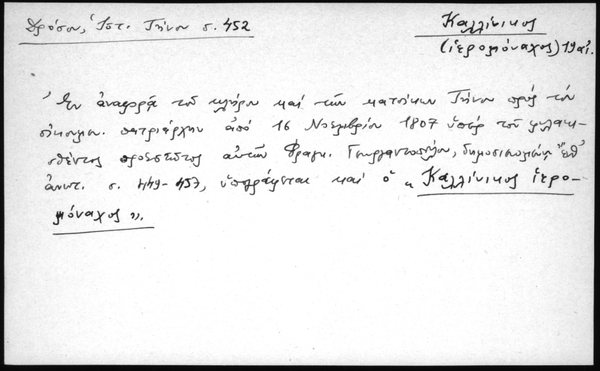 Δρόσου, Ἱστ. Τήνου σ. 452
Καλλίνικος
(ἱερομόναχος) 19 αἰ.
Ἐν ἀναφορᾷ τοῦ κλήρου καὶ τῶν κατοίκων Τήνου πρὸς τὸν
οἰκουμεν. πατριάρχην ἀπὸ 16 Νοεμβρίου 1807 ὑπὲρ τοῦ φυλακι-
σθέντος προεστῶτος αὐτῶν Φραγκ. Γεωργαντοπούλου,
ἀνωτ. σ. 449-457, ὑπογράφεται καὶ ὁ « Καλλίνικος ἱερο-
μόναχος ».